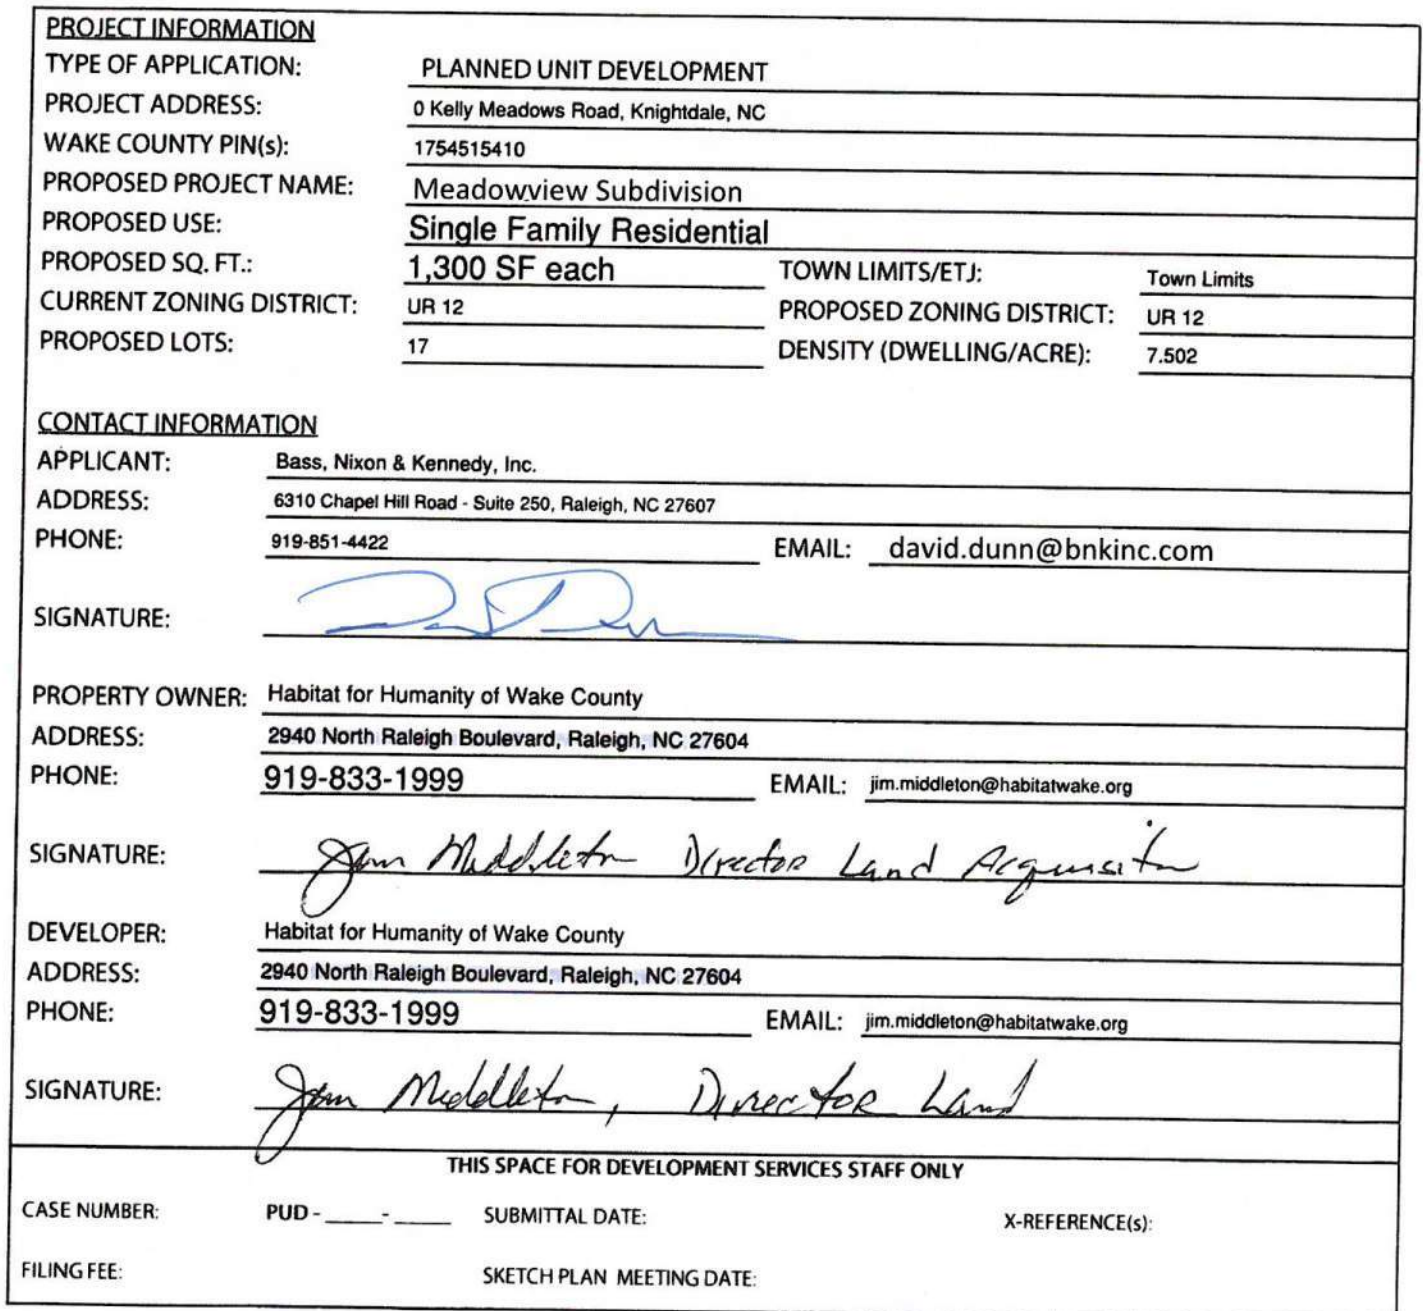 PROJECT INFORMATION
TYPE OF APPLICATION: PLANNED UNIT DEVELOPMENT
PROJECT ADDRESS: 0 Kelly Meadows Road, Knightdale, NC
WAKE COUNTY PIN(s): 1754515410
PROPOSED PROJECT NAME: Meadowview Subdivision
PROPOSED USE: Single Family Residential
PROPOSED SQ. FT.: 1,300 SF each TOWN LIMITS/ETJ: Town Limits
CURRENT ZONING DISTRICT: UR 12 PROPOSED ZONING DISTRICT: UR 12
PROPOSED LOTS: 17 DENSITY (DWELLING/ACRE): 7.502
CONTACT INFORMATION
APPLICANT: Bass, Nixon & Kennedy, Inc.
ADDRESS: 6310 Chapel Hill Road - Suite 250, Raleigh, NC 27607
PHONE: 919-851-4422 EMAIL: david.dunn@bnkinc.com
SIGNATURE:
PROPERTY OWNER: Habitat for Humanity of Wake County
ADDRESS: 2940 North Raleigh Boulevard, Raleigh, NC 27604
PHONE: 919-833-1999 EMAIL: jim.middleton@habitatwake.org
SIGNATURE: Jim Middleton Director Land Acquisition
DEVELOPER: Habitat for Humanity of Wake County
ADDRESS: 2940 North Raleigh Boulevard, Raleigh, NC 27604
PHONE: 919-833-1999 EMAIL: jim.middleton@habitatwake.org
SIGNATURE: Jim Middleton, Director Land
THIS SPACE FOR DEVELOPMENT SERVICES STAFF ONLY
CASE NUMBER: PUD - _____-_____ SUBMITTAL DATE: X-REFERENCE(s):
FILING FEE: SKETCH PLAN MEETING DATE: